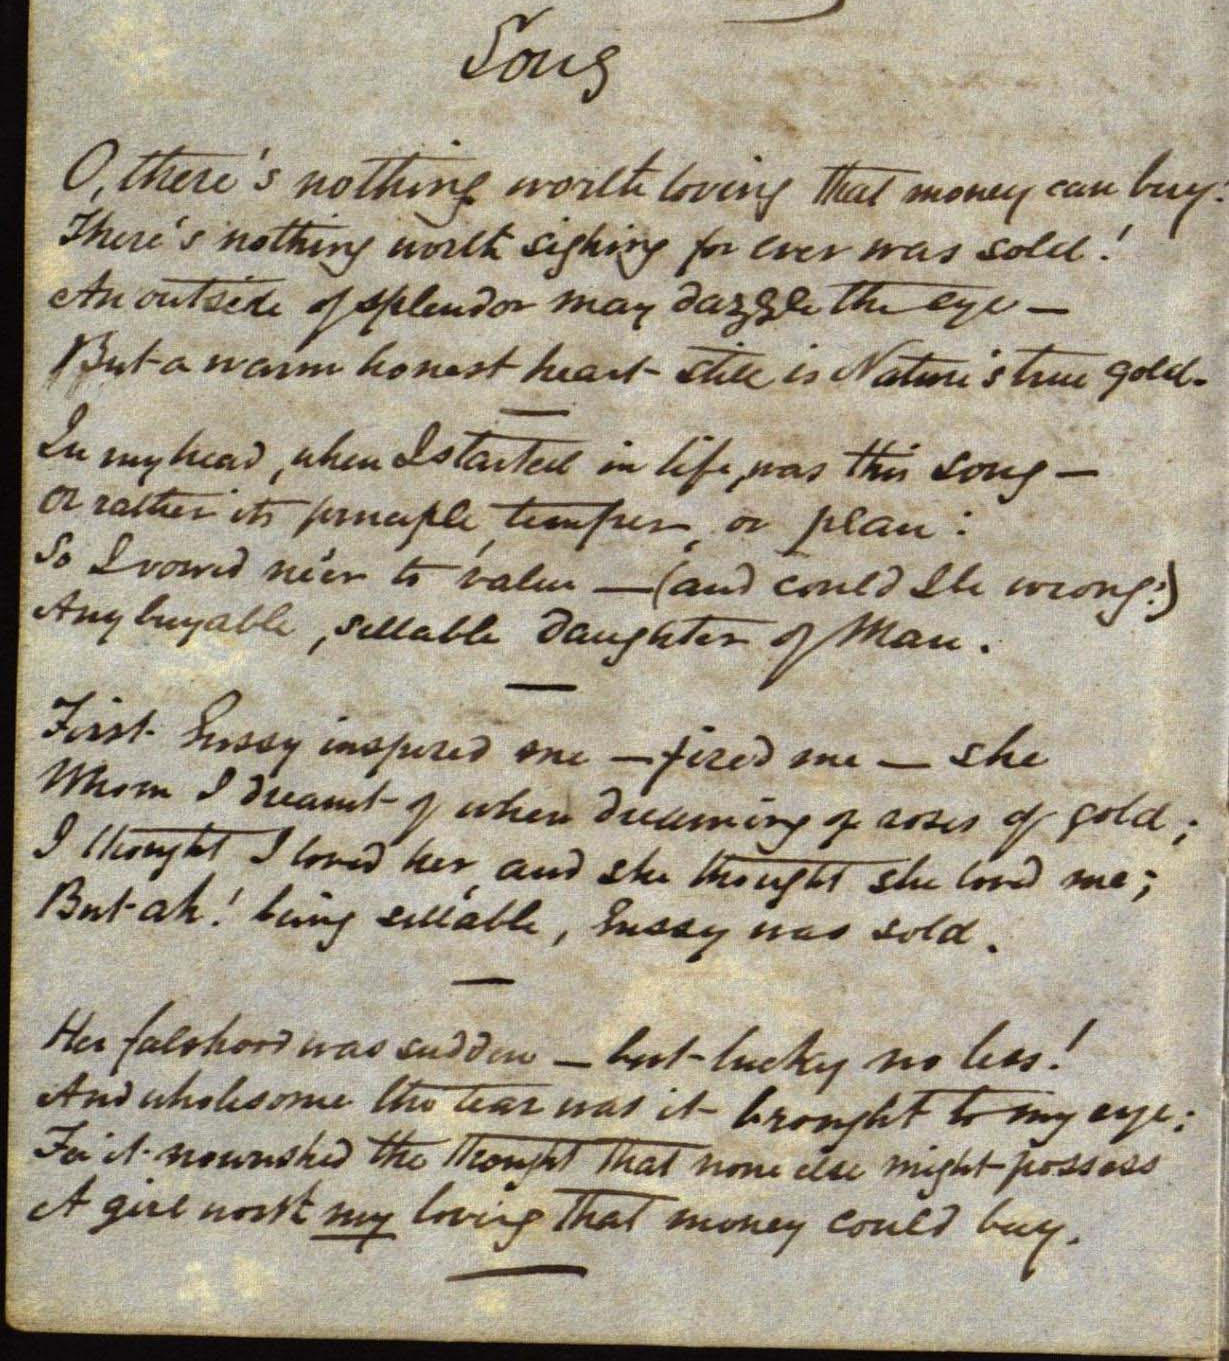 Song
O, there's nothing worth loving that money can buy.
There's nothing worth sighing for ever was sold!
An outside of splendor may dazzle the eye —
But a warm honest heart still is Nature's true gold.
In my head, when I started in life, was this song —
Or rather its principle, temper, or plan:
So I vowed ne'er to value — (and could I be wrong?)
Any buyable, sellable daughter of Man.
First Gussy inspired me — fired me — she
Whom I dreamt of when dreaming of roses of gold;
I thought I loved her, and she thought she loved me;
But ah! being sellable, Gussy was sold.
Her falshood was sudden — but lucky no less!
And wholesome the tear was it brought to my eye;
For it nourished the thought that none else might possess
A girl worth my loving that money could buy.